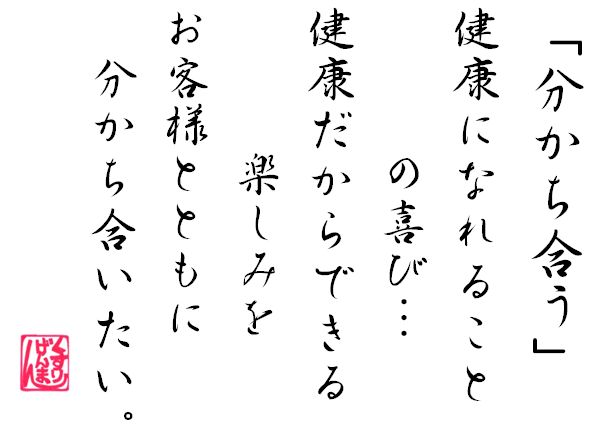 「分かち合う」
健康になれること
の喜び…
健康だからできる
楽しみを
お客様とともに
分かち合いたい。
くすり
げんま